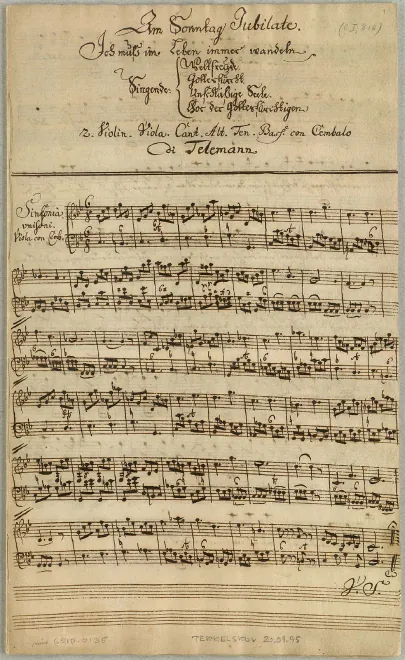 Am Sonntag Jubilate.
Ich muß im Leben immer wandeln
Singende
Weltfreude
Gottesfurcht
Unschlüßige Seele.
Chor der Gottesfürchtigen
2. Violin. Viola. Cant. Alt. Ten. Bass. con Cembalo
di Telemann
Sinfonia
unisoni.
Viola con Cemb.
V. S.